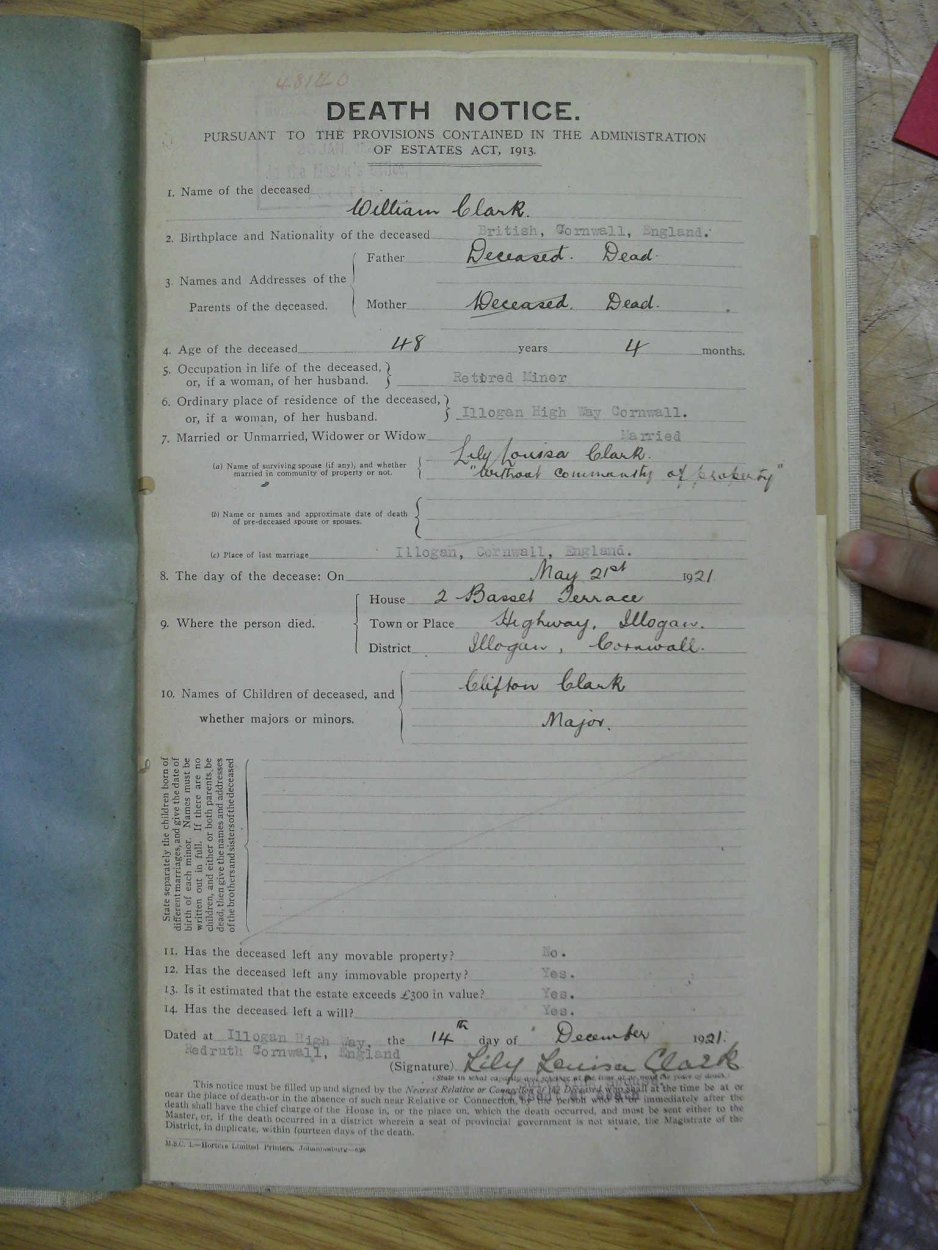 48140
DEATH NOTICE.
PURSUANT TO THE PROVISIONS CONTAINED IN THE ADMINISTRATION
OF ESTATES ACT, 1913.
1. Name of the deceased
William Clark.
2. Birthplace and Nationality of the deceased British, Cornwall, England.
3. Names and Addresses of the Parents of the deceased.
Father Deceased. Dead.
Mother Deceased. Dead.
4. Age of the deceased 48 years 4 months.
5. Occupation in life of the deceased,
or, if a woman, of her husband. Retired Minor
6. Ordinary place of residence of the deceased,
or, if a woman, of her husband. Illogan High Way Cornwall.
7. Married or Unmarried, Widower or Widow Married
(a) Name of surviving spouse (if any), and whether Lily Louisa Clark.
married in community of property or not. "Without community of property"
(b) Name or names and approximate date of death
of pre-deceased spouse or spouses.
(c) Place of last marriage Illogan, Cornwall, England.
8. The day of the decease: On May 21st 1921
9. Where the person died.
House 2 Basset Terrace
Town or Place Highway, Illogan.
District Illogan, Cornwall.
10. Names of Children of deceased, and
whether majors or minors.
Clifton Clark
Major.
State separately the children born of
different marriages, and give the date of
birth of each minor. Names must be
written out in full. If there are no
children, and either or both parents be
dead, then give the names and addresses
of the brothers and sisters of the deceased
11. Has the deceased left any movable property? No.
12. Has the deceased left any immovable property? Yes.
13. Is it estimated that the estate exceeds £300 in value? Yes.
14. Has the deceased left a will? Yes.
Dated at Illogan High Way, the 14th day of December 1921.
Redruth Cornwall, England
(Signature) Lily Louisa Clark
This notice must be filled up and signed by the Nearest Relative or Connection of the Deceased who shall at the time be at or
near the place of death-or in the absence of such near Relative or Connection, by the person who immediately after the
death shall have the chief charge of the House in, or the place on, which the death occurred, and must be sent either to the
Master, or, if the death occurred in a district wherein a seat of provincial government is not situate, the Magistrate of the
District, in duplicate, within fourteen days of the death.
Limited Printers, Johannesburg